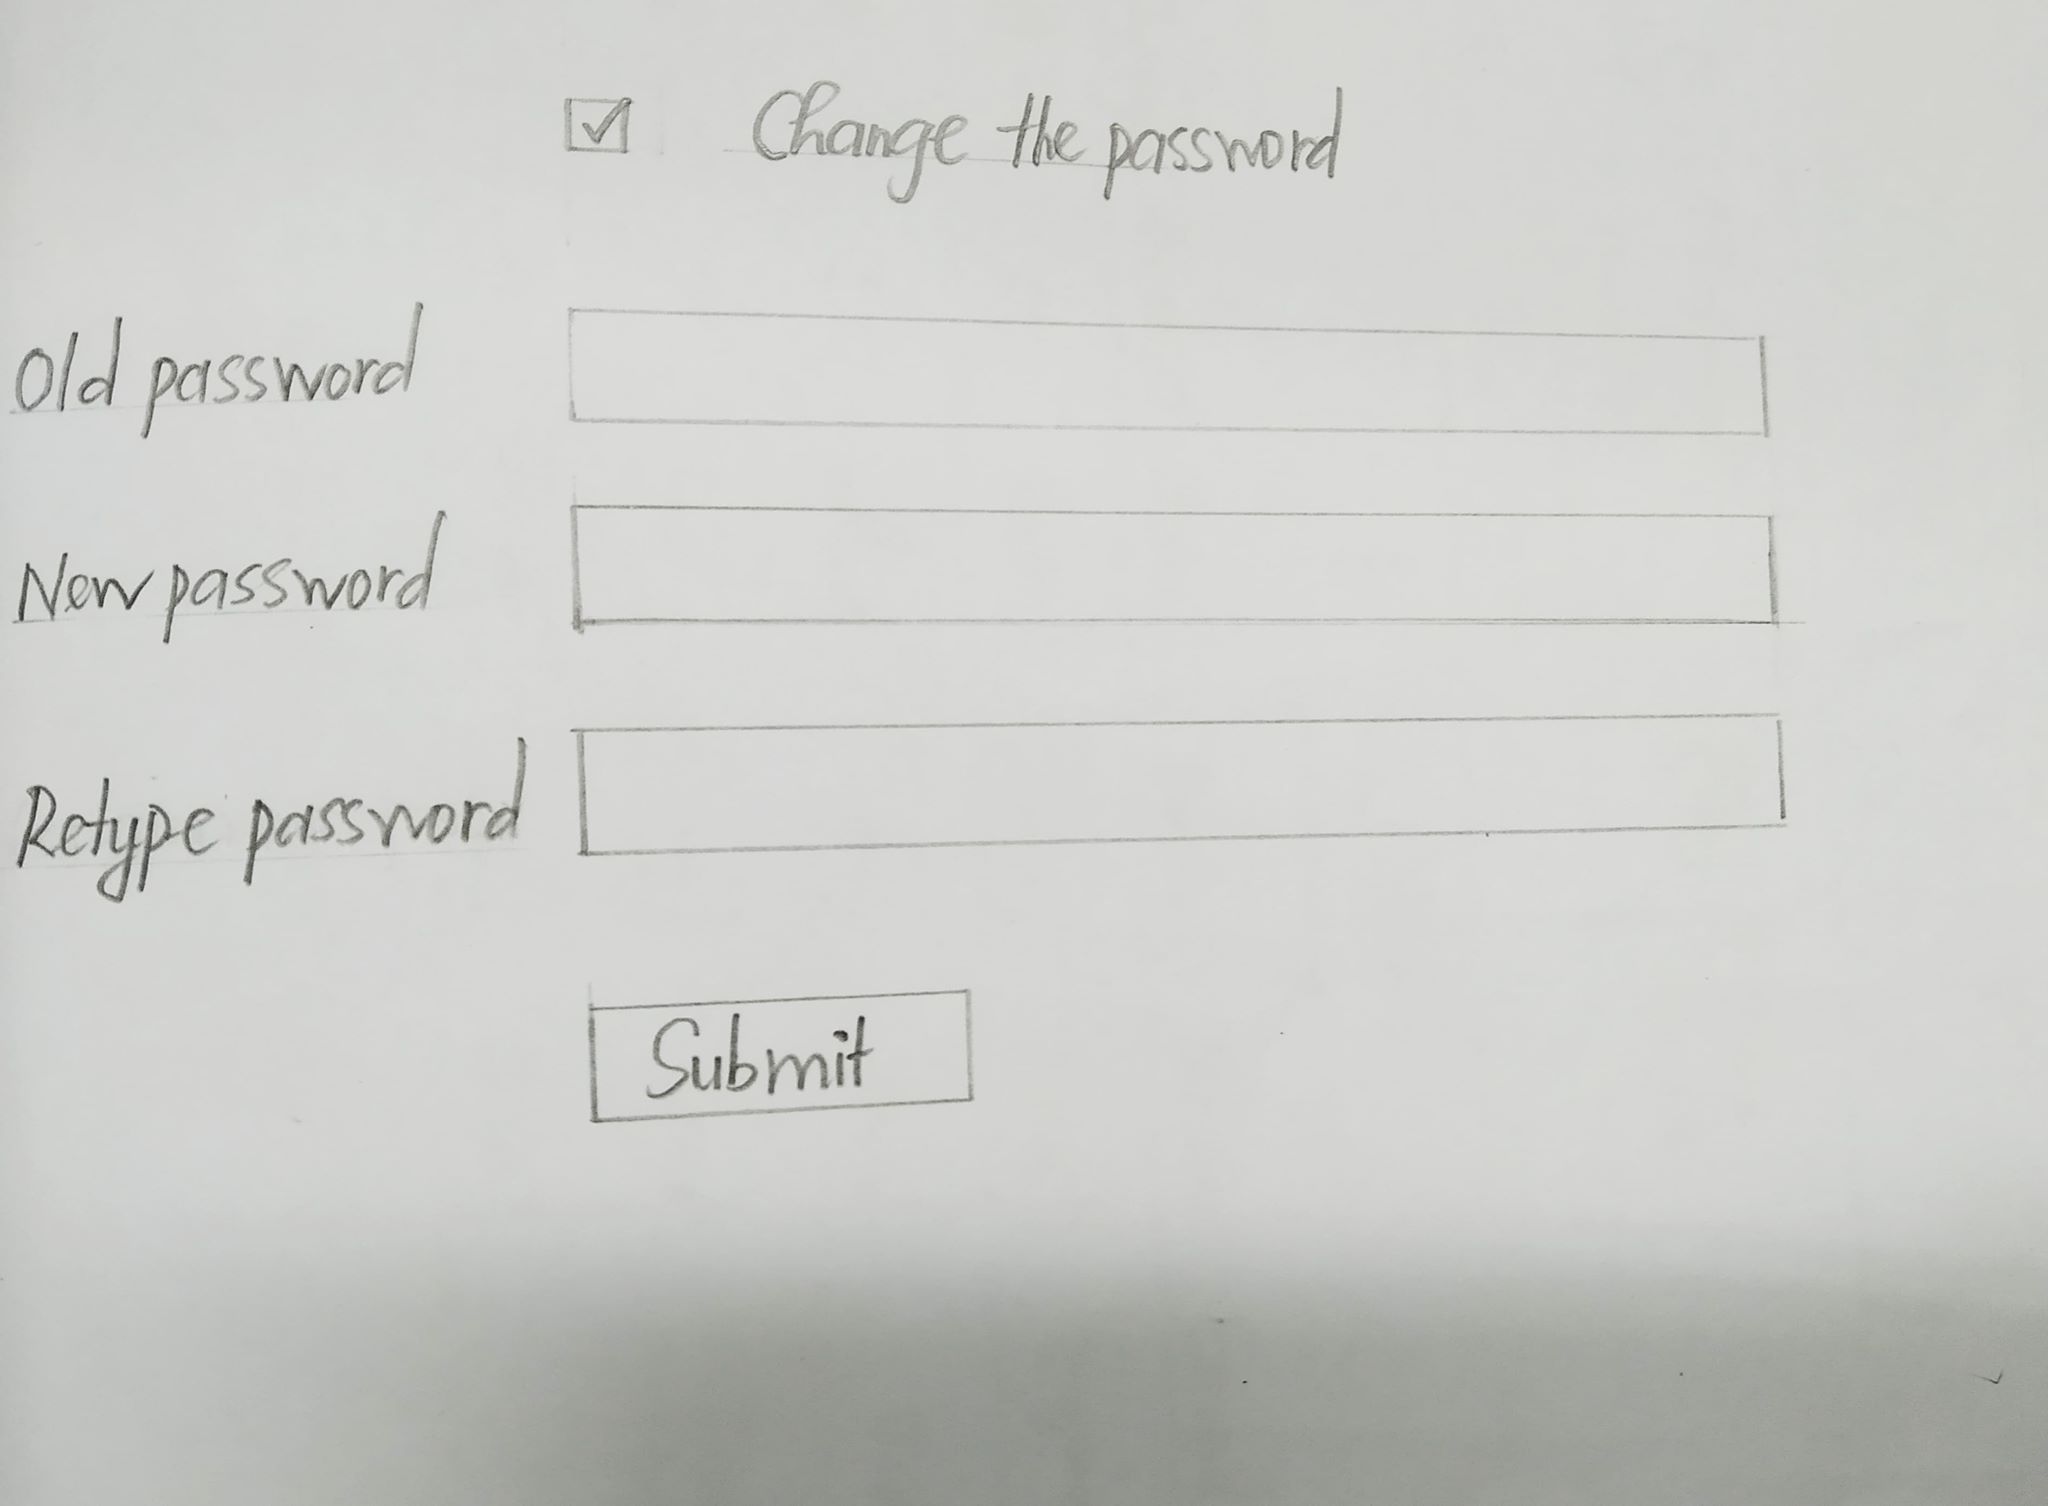 Change the password
Old password
New password
Retype password
Submit